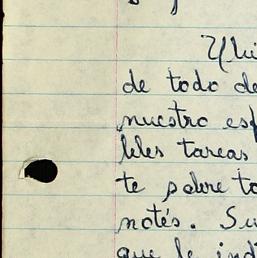 de todo de
nuestro esf
bles tareas
te sobre to
notés. Su
que le ind